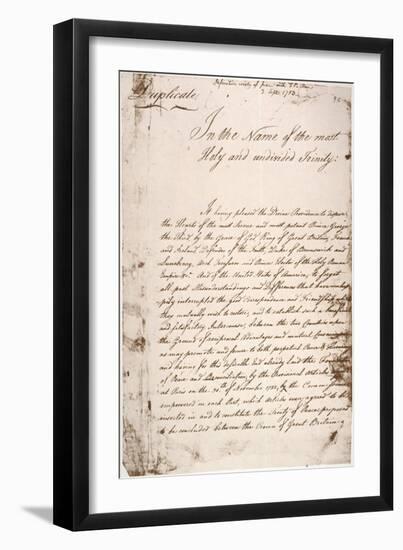 Definitive treaty of peace with
3 Sept. 1783
Duplicate
In the Name of the most
Holy and undivided Trinity.
It having pleased the Divine Providence to dispose
the Hearts of the most Serene and most potent Prince George
the Third by the Grace of God King of Great Britain, France
and Ireland, Defender of the Faith, Duke of Brunswick and
Luneburg, Arch Treasurer and Prince Elector of the Holy Roman
Empire &c. And of the United States of America, to forget
all past Misunderstandings and Differences that have unhap-
pily interrupted the good Correspondence and Friendship which
they mutually wish to restore; and to establish such a beneficial
and satisfactory Intercourse between the two Countries upon
the Ground of reciprocal Advantages and mutual Convenience
as may promote and secure to both perpetual Peace & Harmony
and having for this desirable End already laid the Foundation
of Peace and Reconciliation by the Provisional Articles
at Paris on the 30th of November 1782, by the Commissioners
empowered on each Part, which Articles were agreed to be
inserted in and to constitute the Treaty of Peace proposed
to be concluded between the Crown of Great Britain